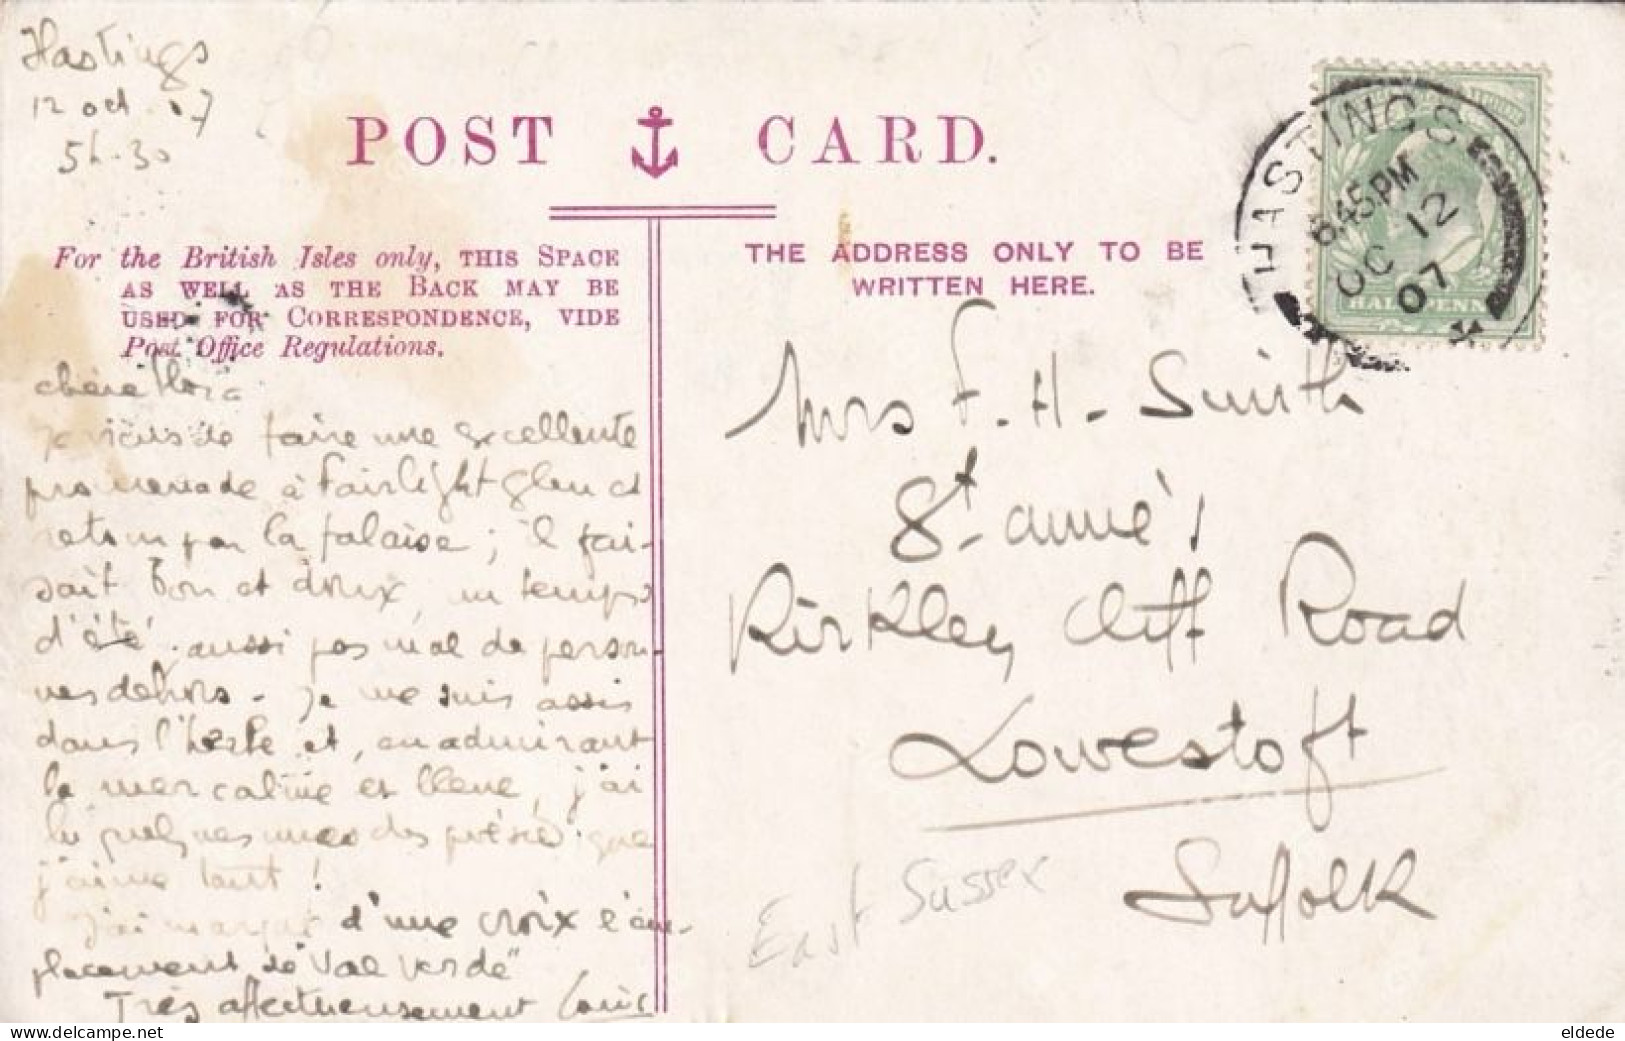 Hastings
12 oct. 07
5h.30
POST CARD.
For the British Isles only, THIS SPACE
AS WELL AS THE BACK MAY BE
USED FOR CORRESPONDENCE, VIDE
Post Office Regulations.
THE ADDRESS ONLY TO BE
WRITTEN HERE.
HASTINGS
6.45 PM
OC 12
07
HALFPENNY
chère Flora
Je viens de faire une excellente
promenade à Fairlight Glen et
retour par la falaise; il fai-
sait bon et doux, un temps
d'été. aussi pas mal de person-
nes dehors. Je me suis assis
dans l'herbe et, en admirant
la mer calme et bleue, j'ai
lu quelques unes des que
j'aime tant!
J'ai marqué d'une croix l'em-
placement de "Val Verde"
Très affectueusement Louis
Mrs F. H. Smith
St. Anne's
Kirkley Cliff Road
Lowestoft
Suffolk
East Sussex
eldede